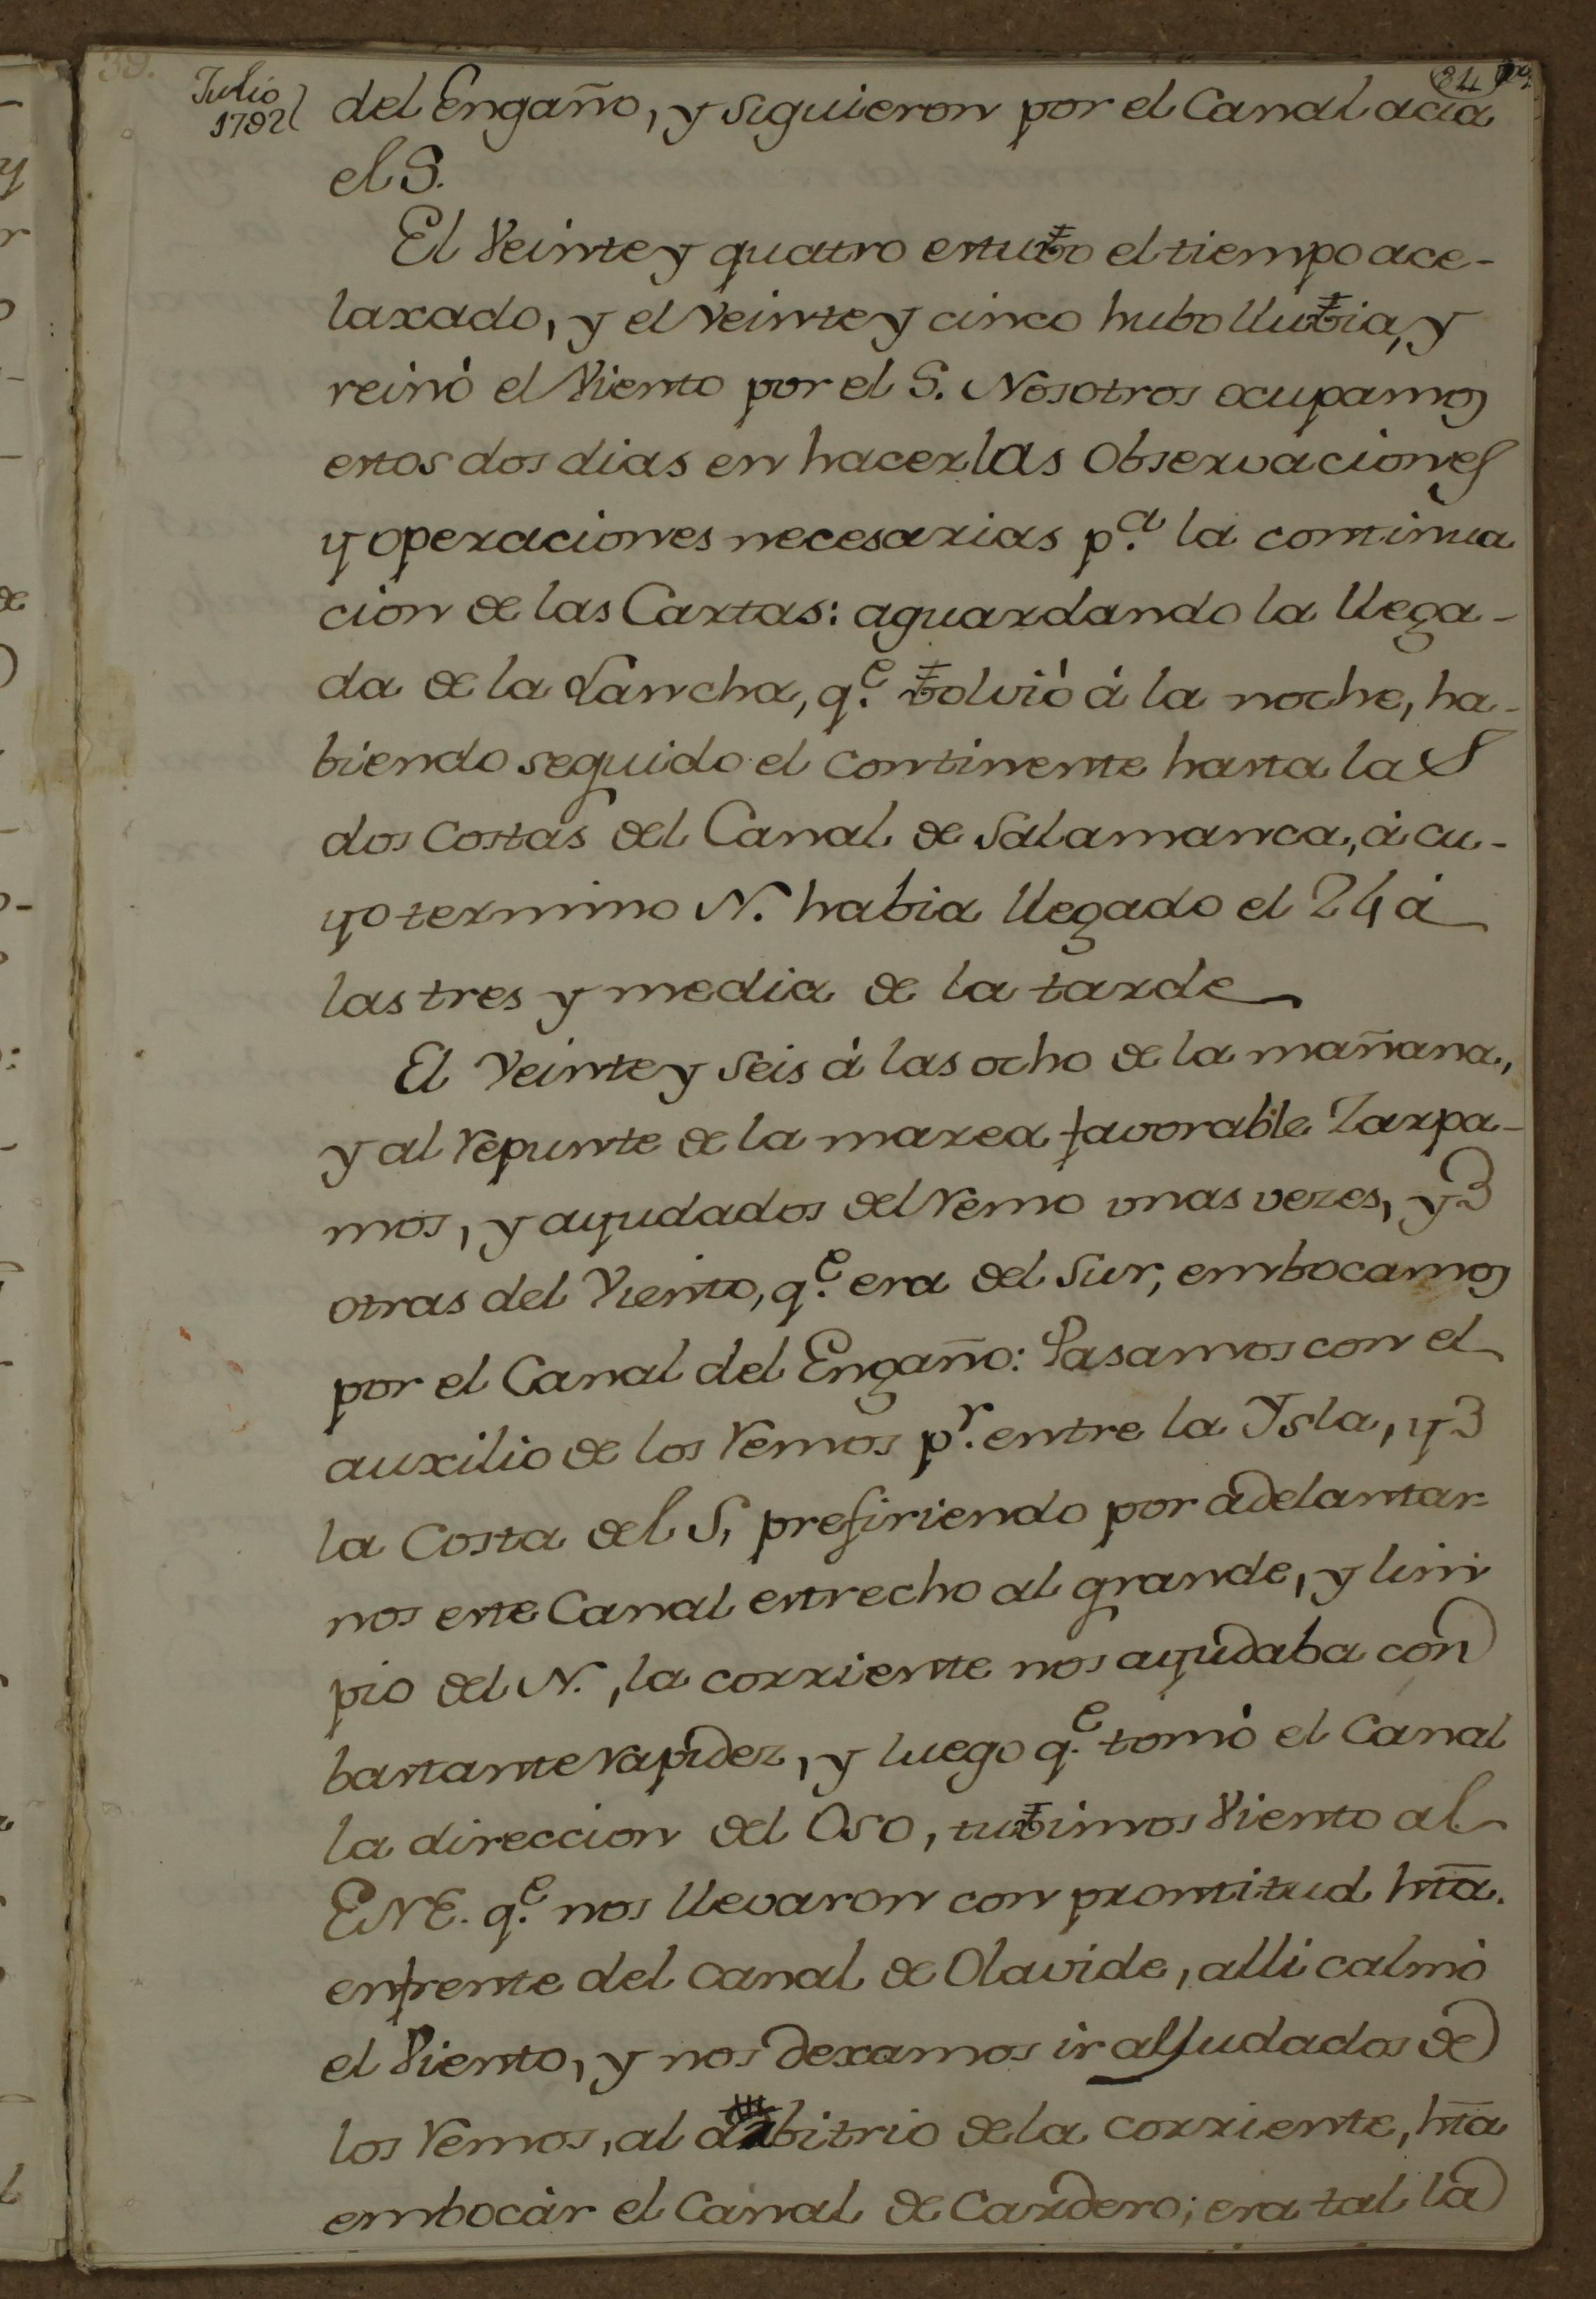 39.
Julio
1792
del Engaño, y siguieron por el Canal acia
el S.
El Veinte y quatro estubo el tiempo ace-
laxado, y el Veinte y cinco hubo llubia, y
reinó el Viento por el S. Nosotros ocupamos
estos dos dias en hacer las Observaciones
y operaciones necesarias p.ª la continua
cion de las Cartas: aguardando la llega-
da de la Lancha, q.e bolvió á la noche, ha-
biendo seguido el continente hasta las
dos Costas del Canal de Salamanca, á cu-
yo termino N. habia llegado el 24 á
las tres y media de la tarde
El Veinte y seis á las ocho de la mañana,
y al repunte de la marea favorable Zarpa-
mos, y ayudados del remo unas vezes, y
otras del Viento, q.e era del Sur, embocamos
por el Canal del Engaño: Pasamos con el
auxilio de los remos p.r entre la Ysla, y
la Costa del S, prefiriendo por adelantar-
nos este Canal estrecho al grande, y lim
pio del N., la corriente nos ayudaba con
bastante rapidez, y luego q.e tomó el Canal
la direccion del Oso, tubimos Viento al
ENE. q.e nos llevaron con prontitud hta.
enfrente del canal de Olavide, alli calmó
el Viento, y nos dexamos ir alludados de
los remos, al arbitrio de la corriente, hta
embocár el Canal de Cardero; era tal la